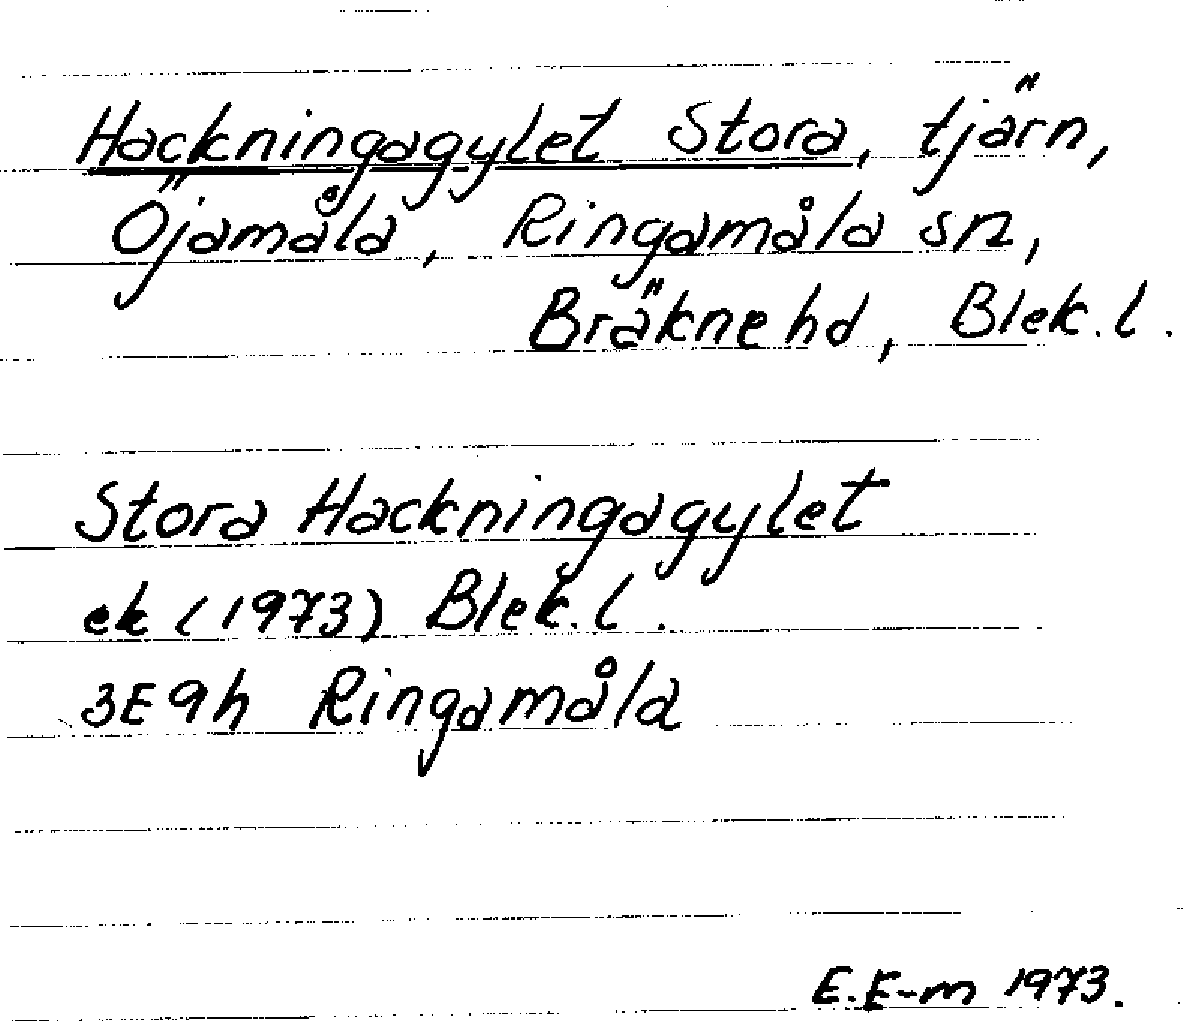 Hackningagylet Stora, tjärn,
Öjamåla, Ringamåla sn,
Bräkne hd, Blek. l.
Stora Hackningagylet
ek (1973) Blek. l.
3E9h Ringamåla
E.E-m 1973.